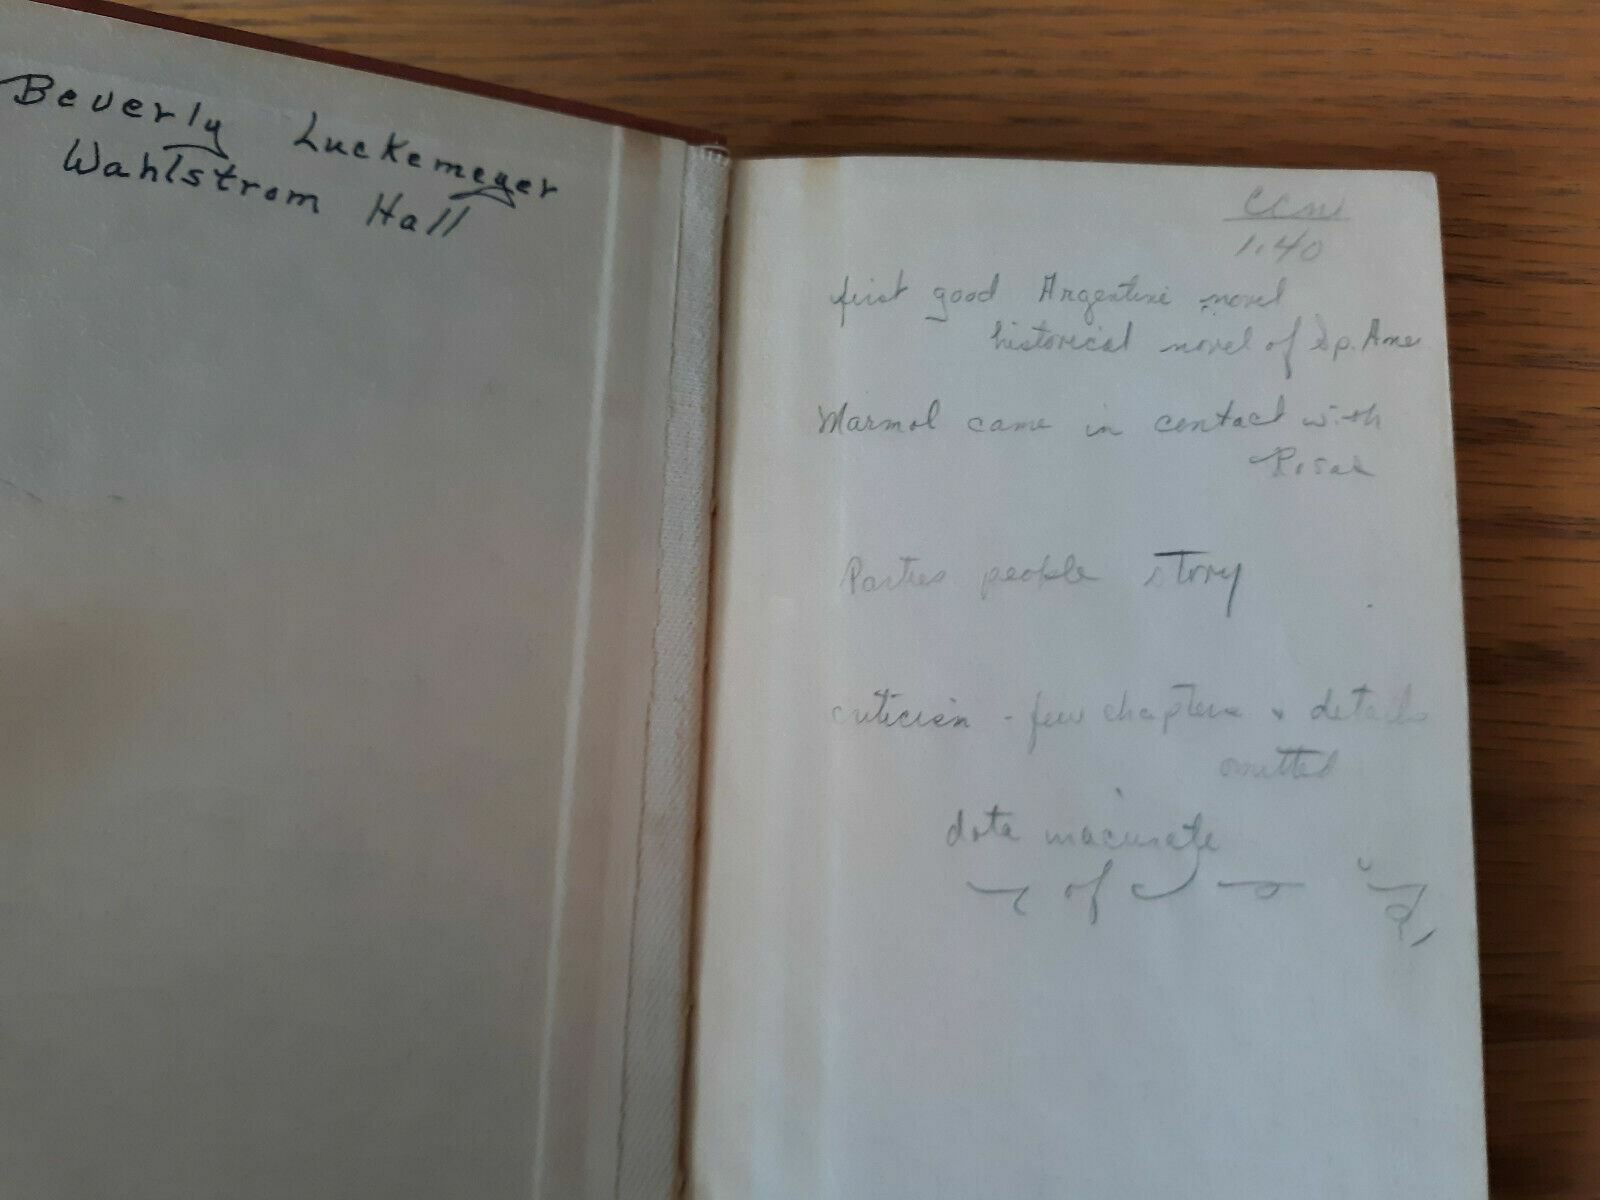 Beverly Luckemeyer
Wahlstrom Hall
ccw
1.40
first good Argentine novel
historical novel of Sp. Amer
Marmol came in contact with
Rosas
Parties people story
criticism - few chapters & details
omitted
data inaccurate
of